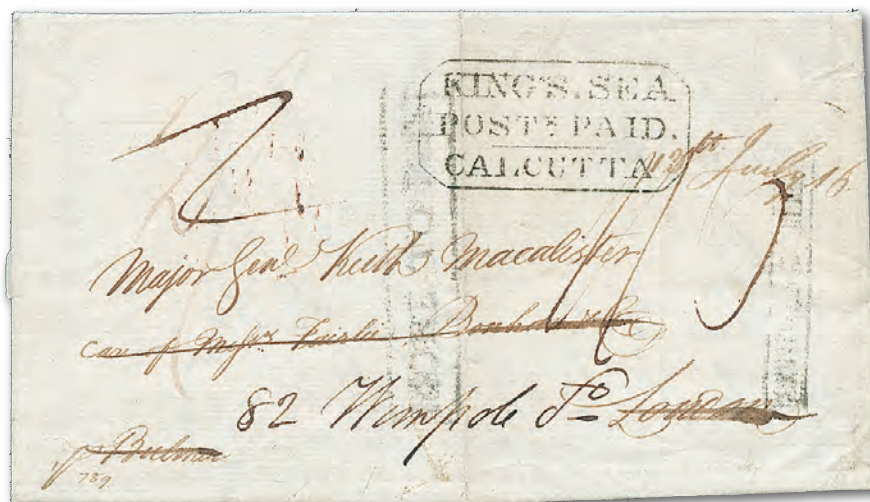 KING'S.SEA
POSTS PAID.
CALCUTTA
July 16
2
Major Genl Keith Macalister
Care of Messrs Fairlie Bonham & Co
82 Wimpole St London
789